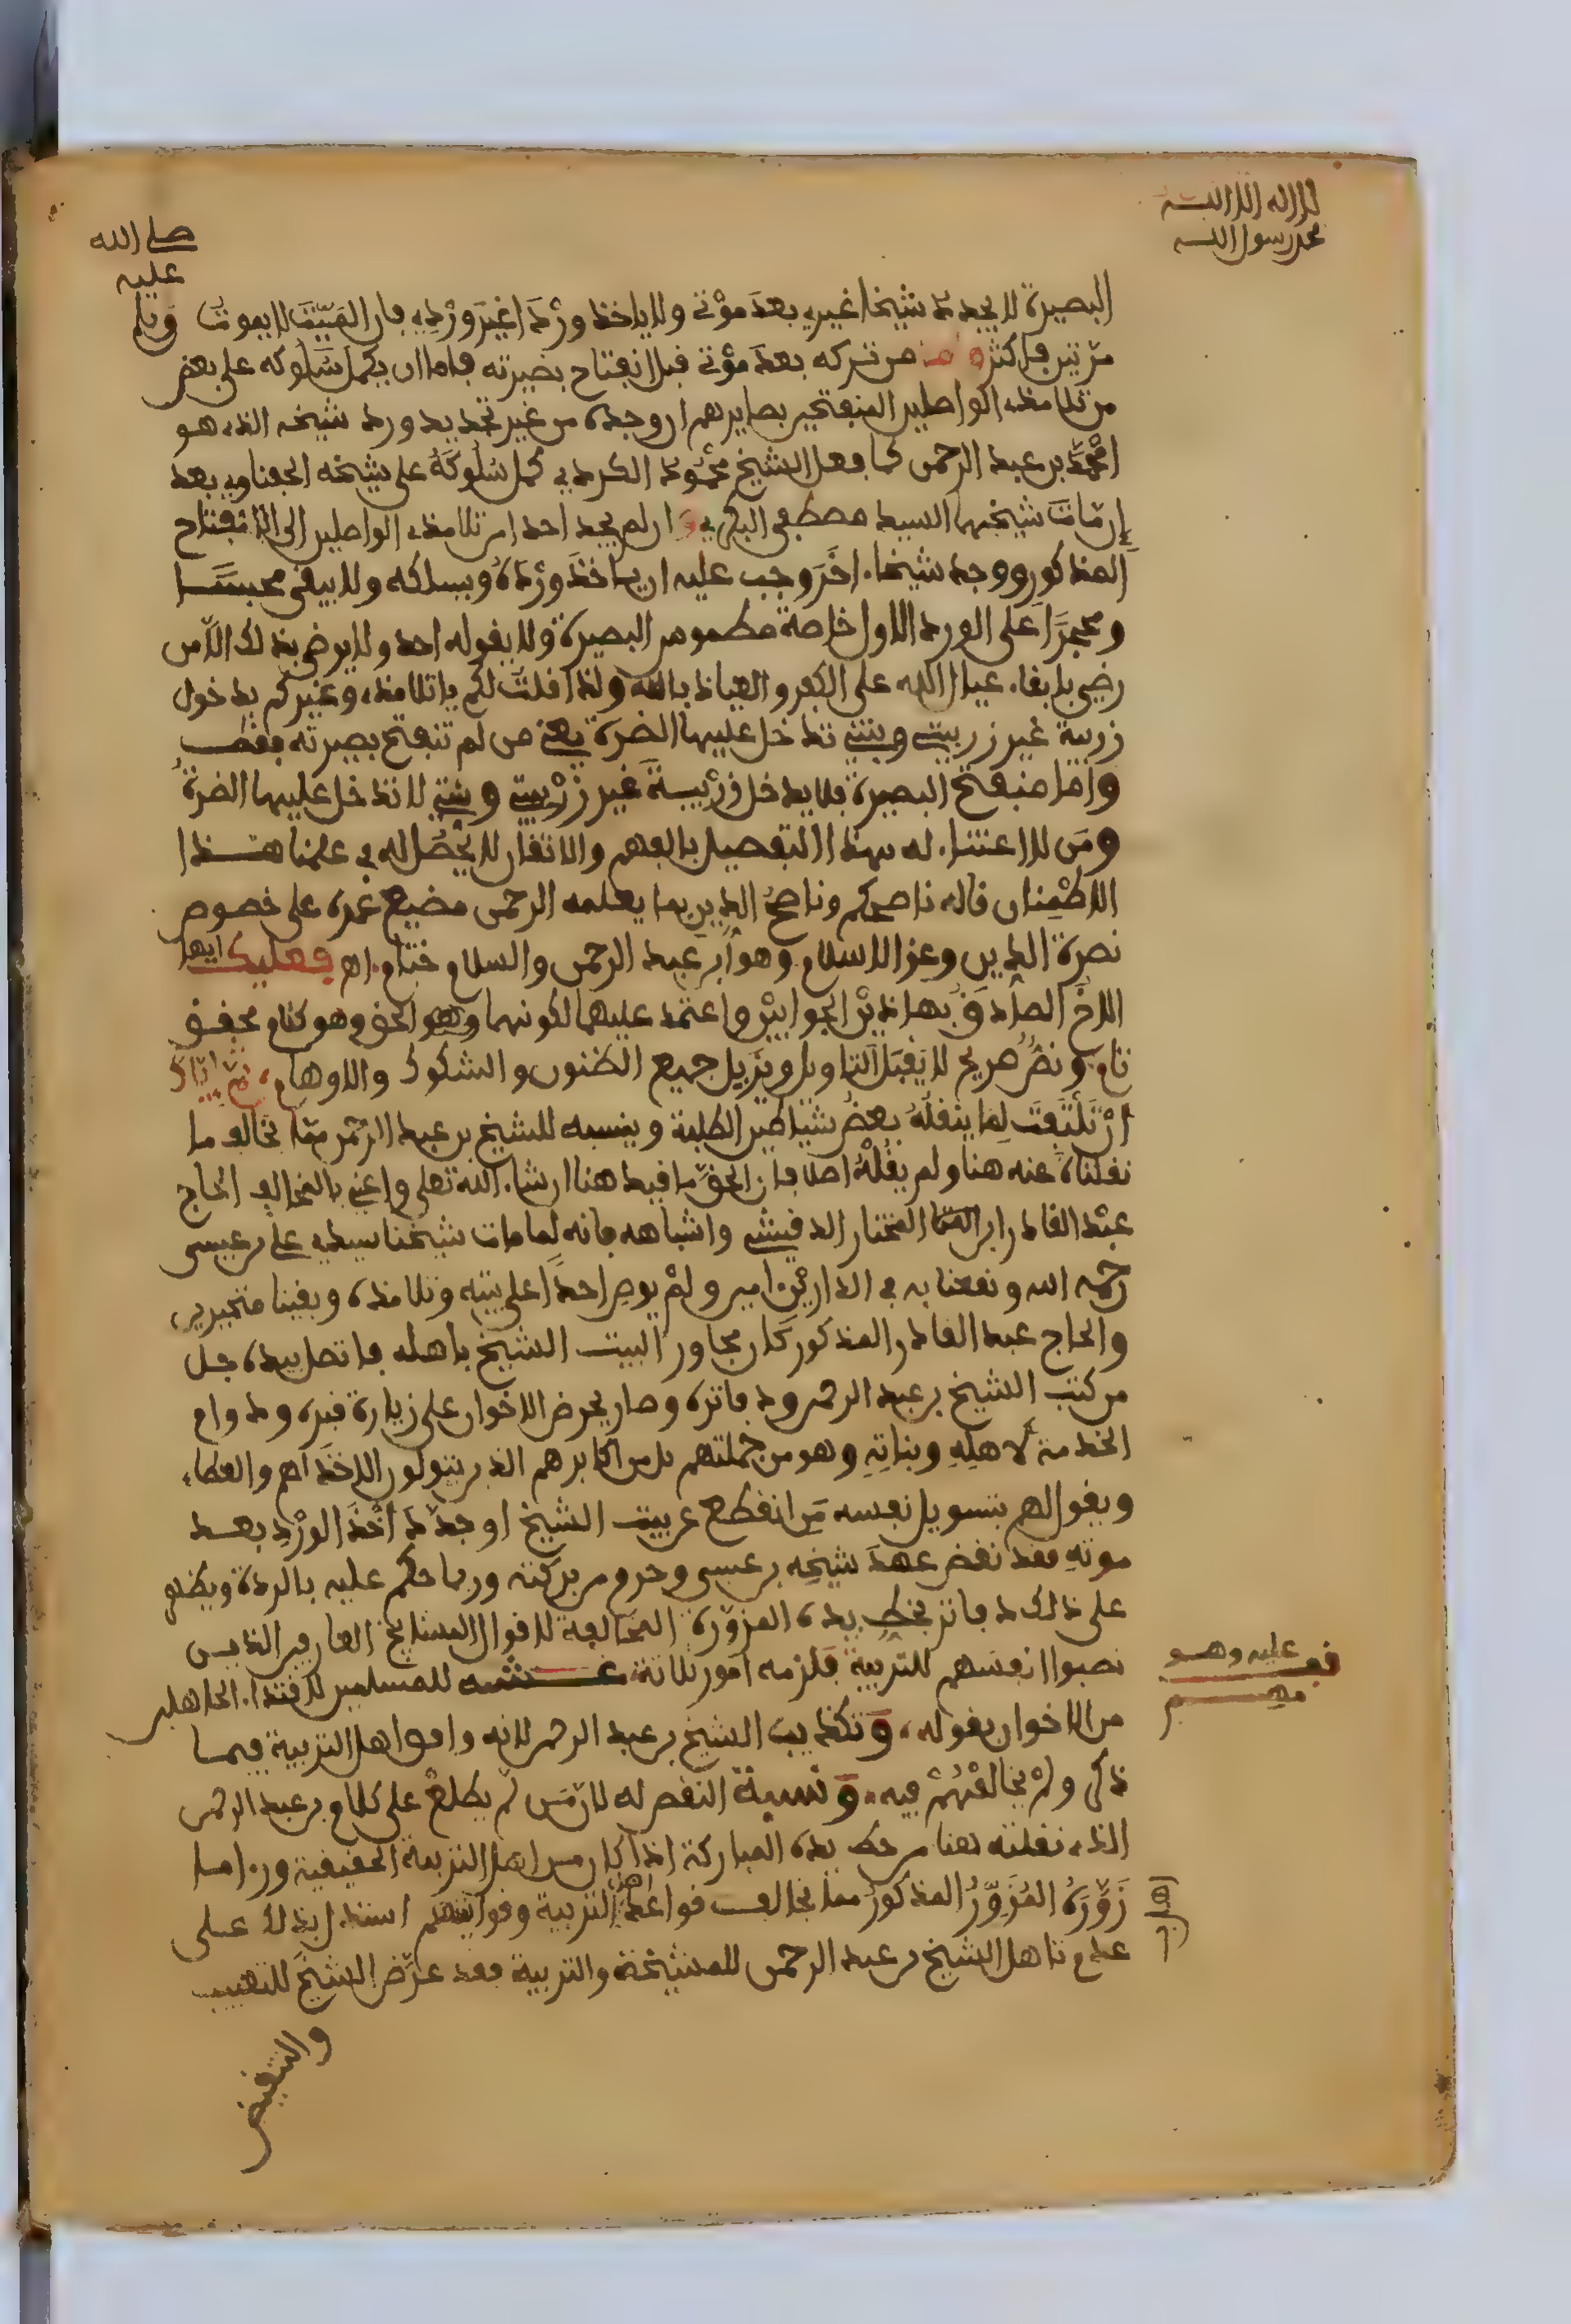 لا اله الا الله
محمد رسول الله
صلى الله
عليه
وسلم
البصيرة لا يجدد شيخا غيري بعد موتي ولا ياخذ وردا غير وردي فان الميت لا يموت
مرتين فاكثر من تركه بعد موتي قبل انفتاح بصيرته فاما ان يكمل سلوكه على بعض
من تلامذه الواصلين المنفتحين بصايرهم ان وجده من غير تجديد ورد شيخه الذي هو
امحمد بن عبد الرحمن كما فعل الشيخ محمود الكردي كمل سلوكه على شيخه الحفناوي بعد
ان مات شيخهما السيد مصطفى البكري وان لم يجد احدا من تلامذه الواصلين الى الانفتاح
المذكور ووجد شيخا اخر وجب عليه ان ياخذ ورده ويسلكه ولا يبقى محبسا
ومحجرا على الورد الاول خاصة مطموس البصيرة ولا يقوله احد ولا يرضى بذلك الا من
رضي بابقاء عيال الله على الكفر والعياذ بالله ولذا قلت لكم يا تلامذه وغيركم بدخول
زريبة غير زريبتي وبنتي تدخل عليها الضرة يعني من لم تنفتح بصيرته فقط
واما منفتح البصيرة فلا يدخل زريبة غير زريبتي وبنتي لا تدخل عليها الضرة
ومن لا اعتناء له بهذا التفصيل بالفهم والاتقان لا يحصل له في علمنا هذا
الاطمنان قاله ناصحكم وناصح الدين بما يعلمه الرحمن مضيع عمره على خصوص
نصرة الدين وعز الاسلام وهو ابن عبد الرحمن والسلام ختام اهـ فعليك ايها
الاخ الصادق بهاذين الجوابين واعتمد عليهما لكونهما وهو الحق وهو كلام محقق
تام ونص صريح لا يقبل التاويل ويزيل جميع الظنون والشكوك والاوهام ثم اياك
ان تلتفت لما ينقله بعض شياطين الطلبة وينسبه للشيخ بن عبد الرحمن مما تخالف ما
نقلناه عنه هنا ولم يقله اصلا فان الحق ما قيد هنا ان شاء الله تعلى واعني بالمخالف الحاج
عبد القادر ابن المختار الدفيشي واشباهه فانه لما مات شيخنا سيدي علي بن عيسى
رحمه الله ونفعنا به في الدارين امين ولم يوص احدا على بيته وتلامذه وبقينا متحيرين
والحاج عبد القادر المذكور كان مجاور البيت الشيخ باهله فاتصل بيده جل
من كتب الشيخ بن عبد الرحمن ودفاتره وصار يحرض الاخوان على زيارة قبره ودوام
الخدمة لاهله وبناته وهو من جملتهم بل من اكابرهم الذين يتولون الاخذ لهم والعطاء
ويقول لهم بتسويل نفسه من انقطع عن بيت الشيخ او جدد اخذ الورد بعد
موته فقد نقض عهد شيخه بن عيسى وحرم من بركته وربما حكم عليه بالردة ويظهر
على ذلك دفاتر بخط يده المزورة المخالفة لاقوال المشايخ العارفين الذين
نصبوا انفسهم للتربية فلزمه امور ثلاثة غشه للمسلمين لاقتداء الجاهلين
من الاخوان بقوله وتكذيب الشيخ بن عبد الرحمن لانه وافق اهل التربية فيما
ذكر ولم يخالفهم فيه ونسبة النقص له لان من لم يطلع على كلام بن عبد الرحمن
الذي نقلته هنا من خط يده المباركة اذا كان من اهل التربية الحقيقية ورءا ما
زوره المزور المذكور مما يخالف قواعد اهل التربية وقوانينهم استدل بذلك على
عدم تاهل الشيخ بن عبد الرحمن للمشيخة والتربية فقد عرض الشيخ للتعييب
والتنقيص
قف عليه وهو
مهم